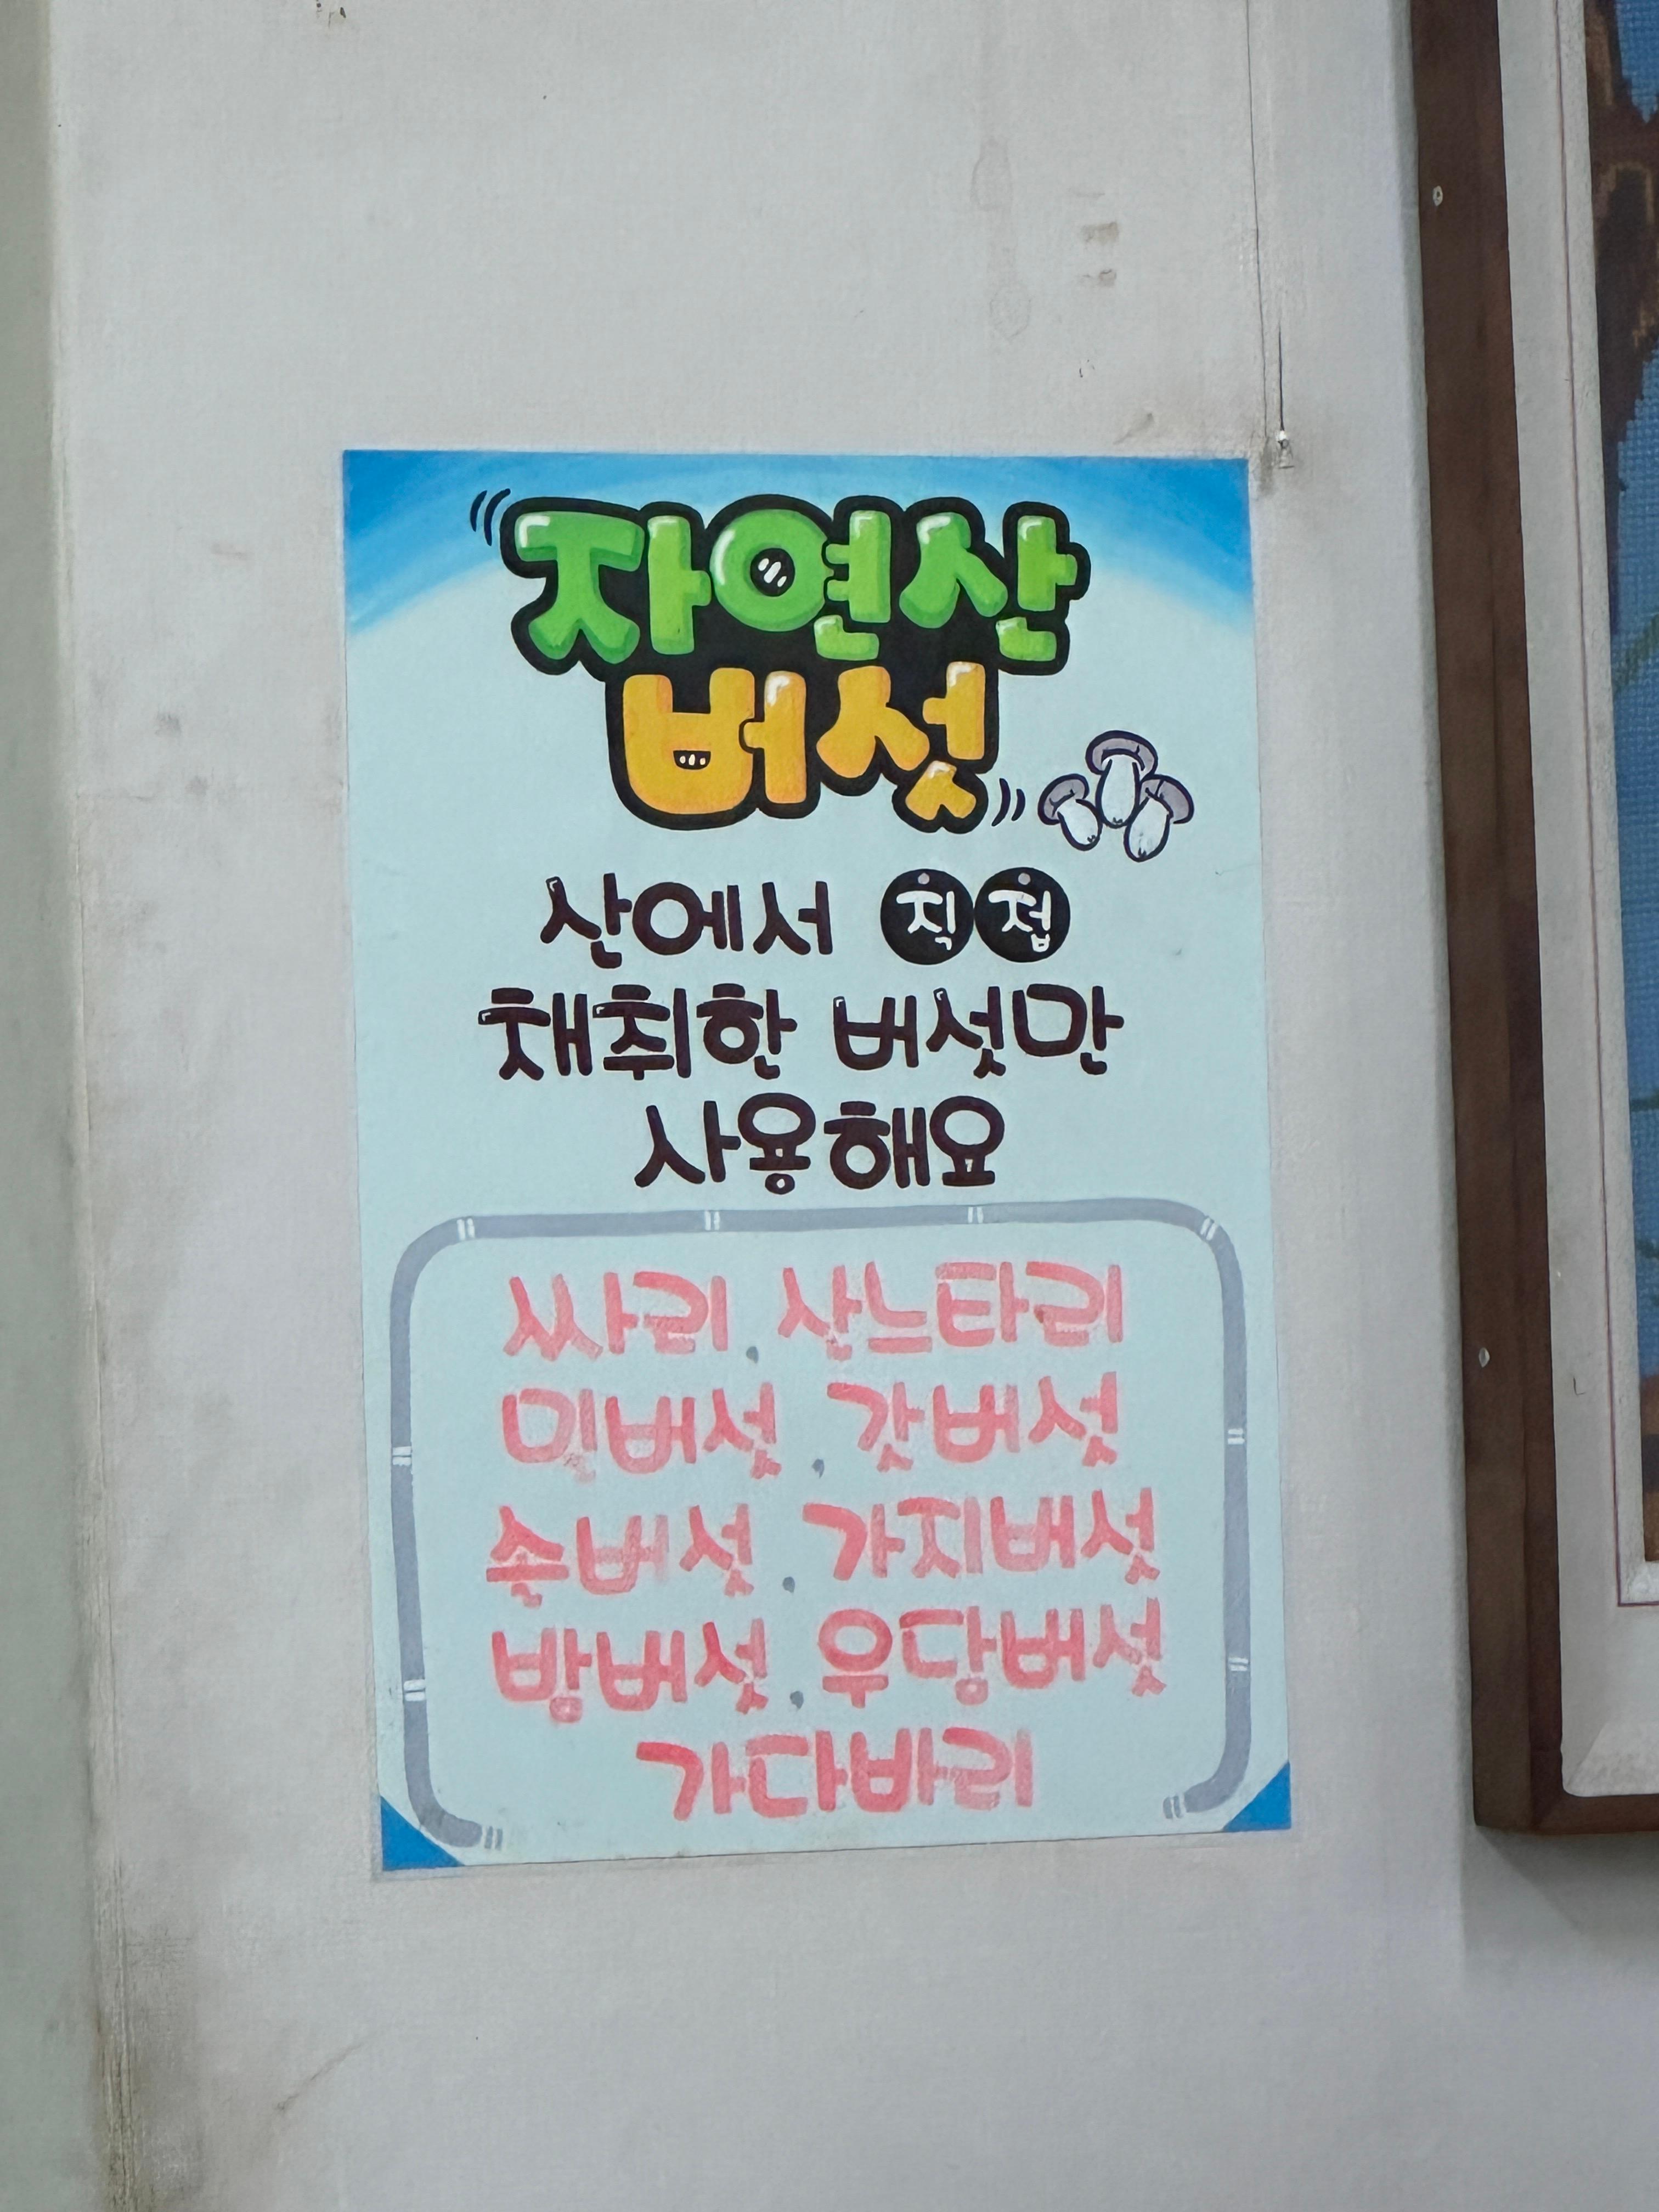 자연산
버섯
산에서 직접
채취한 버섯만
사용해요
싸리, 산느타리
밀버섯, 갓버섯
손버섯, 가지버섯
밤버섯, 우당버섯
가다바리